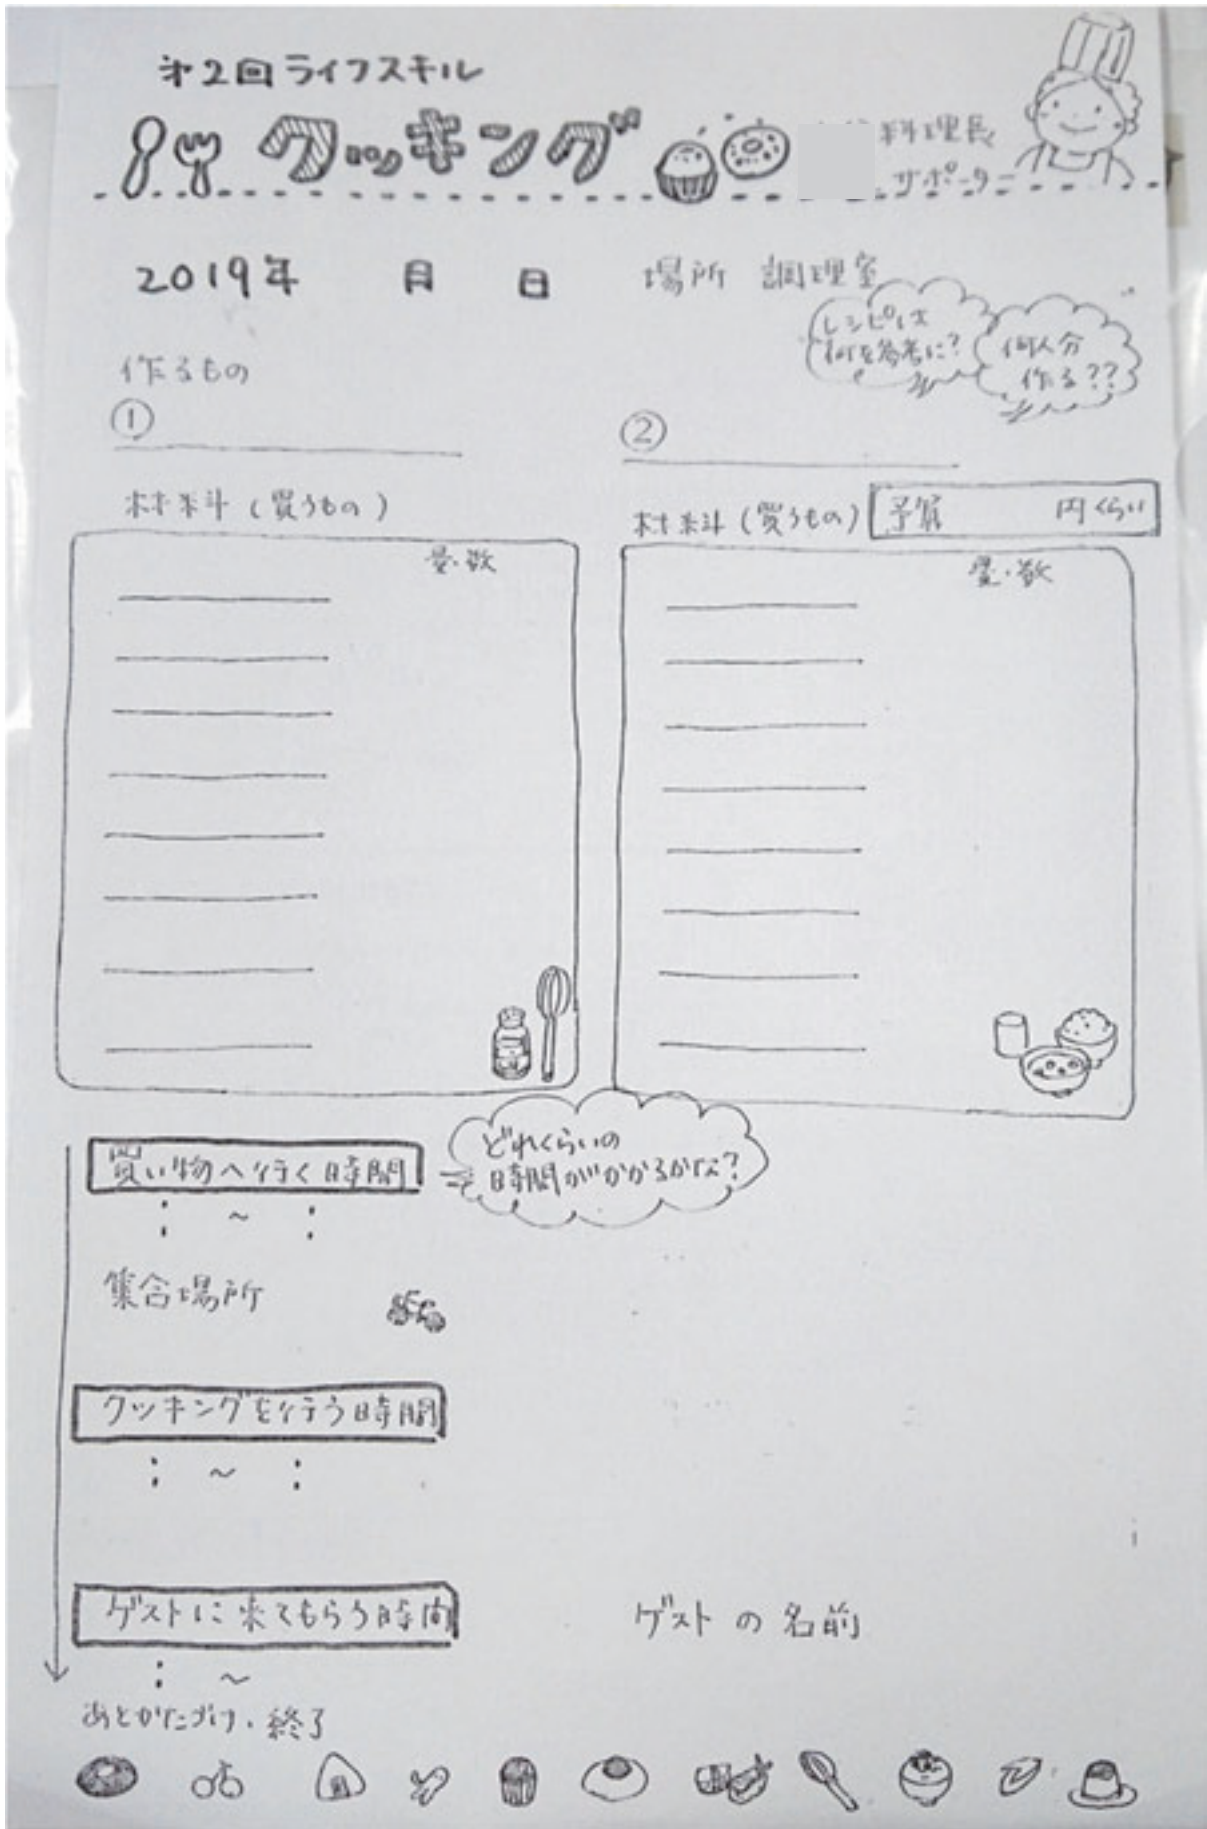 第2回ライフスキル
クッキング
料理長
サポーター
2019年 月 日 場所 調理室
レシピは
何を参考に?
何人分
作る??
作るもの
① ②
材料(買うもの)
量・数
材料(買うもの)
予算 円くらい
量・数
買い物へ行く時間
どれくらいの
時間がかかるかな?
: ~ :
集合場所
クッキングを行う時間
: ~ :
ゲストに来てもらう時間 ゲストの名前
: ~
あとかたづけ・終了